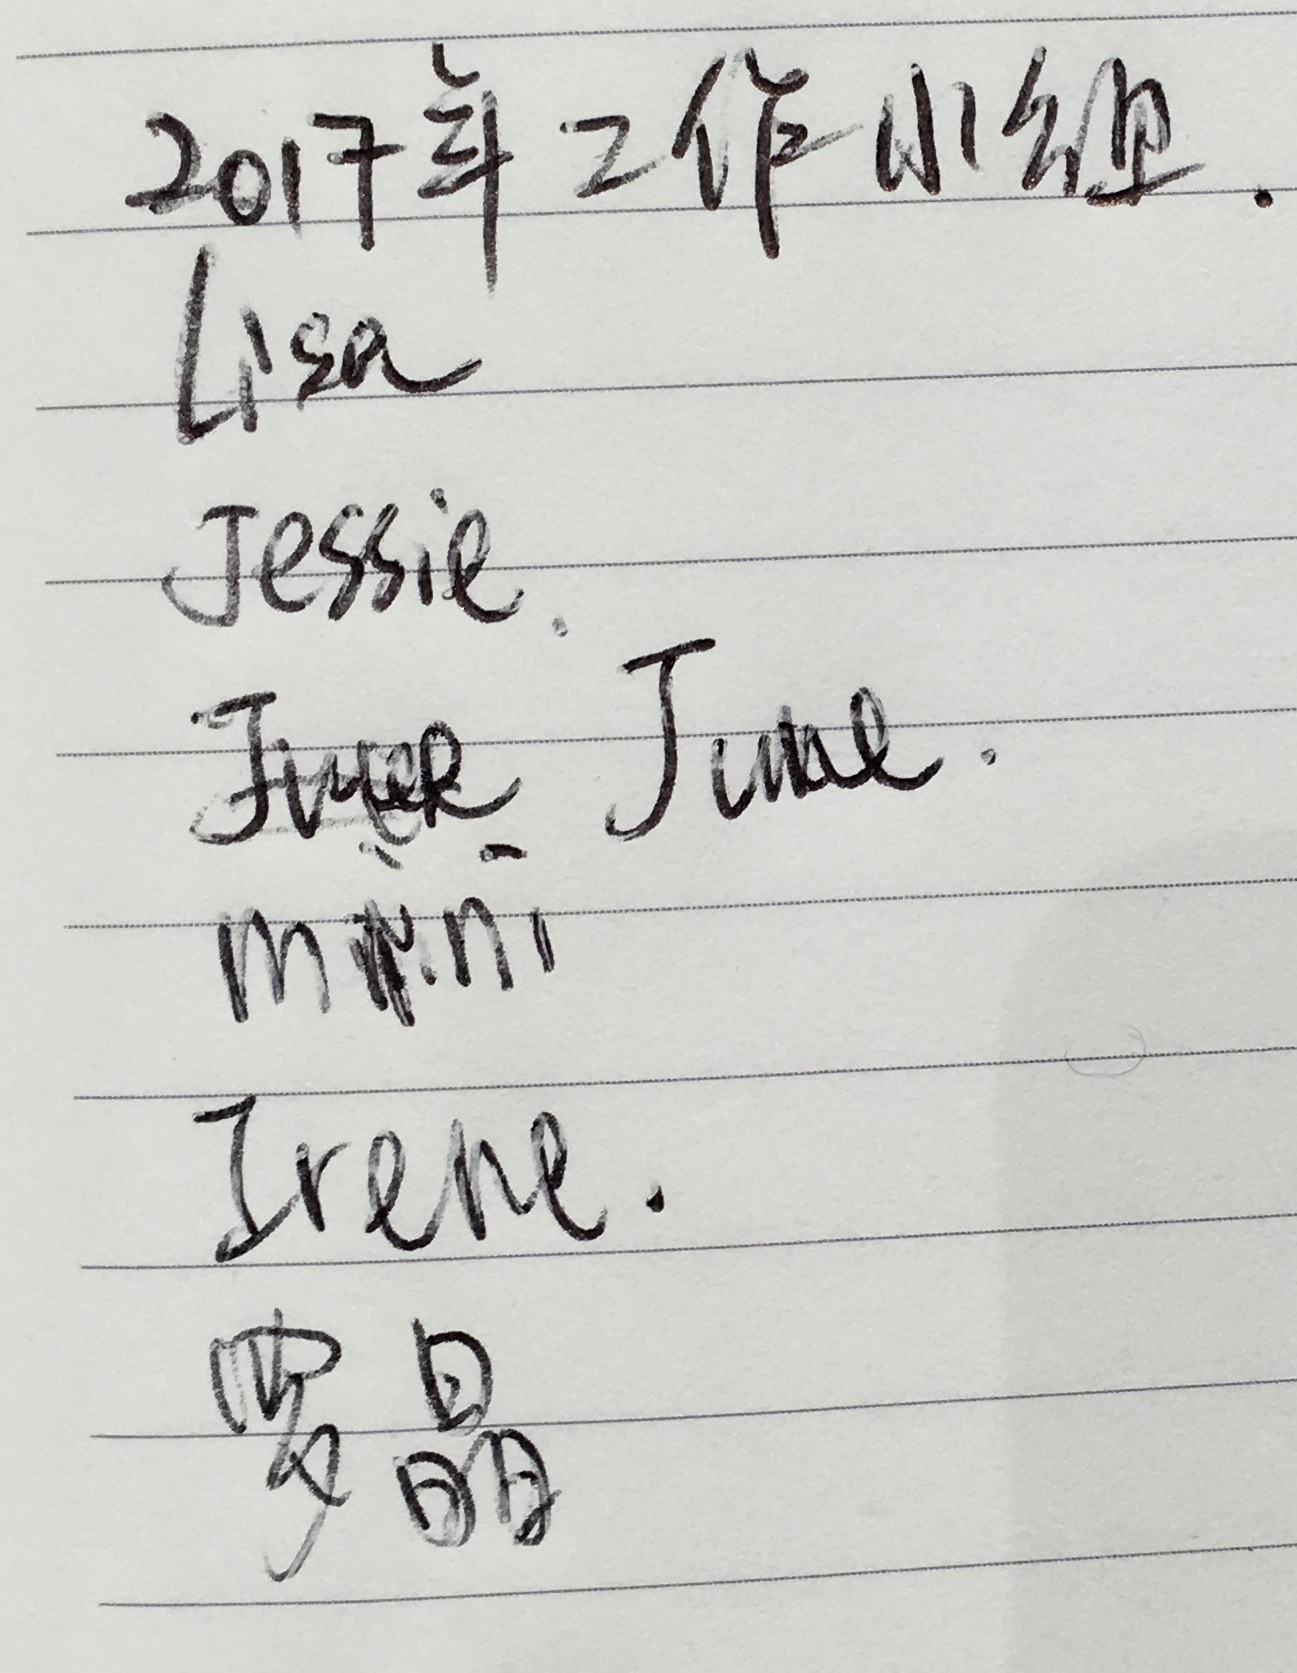 2017年工作小组.
Lisa
Jessie.
June.
mini
Irene.
罗晶